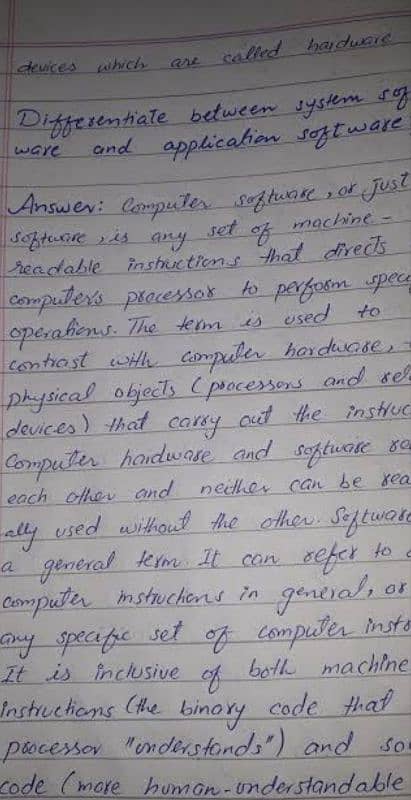 devices which are called hardware
Differentiate between system sof
ware and application software
Answer: Computer software, or just
software, is any set of machine-
readable instructions that directs
computer's processor to perform spec
operations. The term is used to
contrast with computer hardware,
physical objects (processors and rel
devices) that carry out the instruc
Computer hardware and software
each other and neither can be rea
ally used without the other. Software
a general term. It can refer to
computer instructions in general, or
any specific set of computer inst
It is inclusive of both machine
instructions (the binary code that
processor "understands") and so
code (more human-understandable